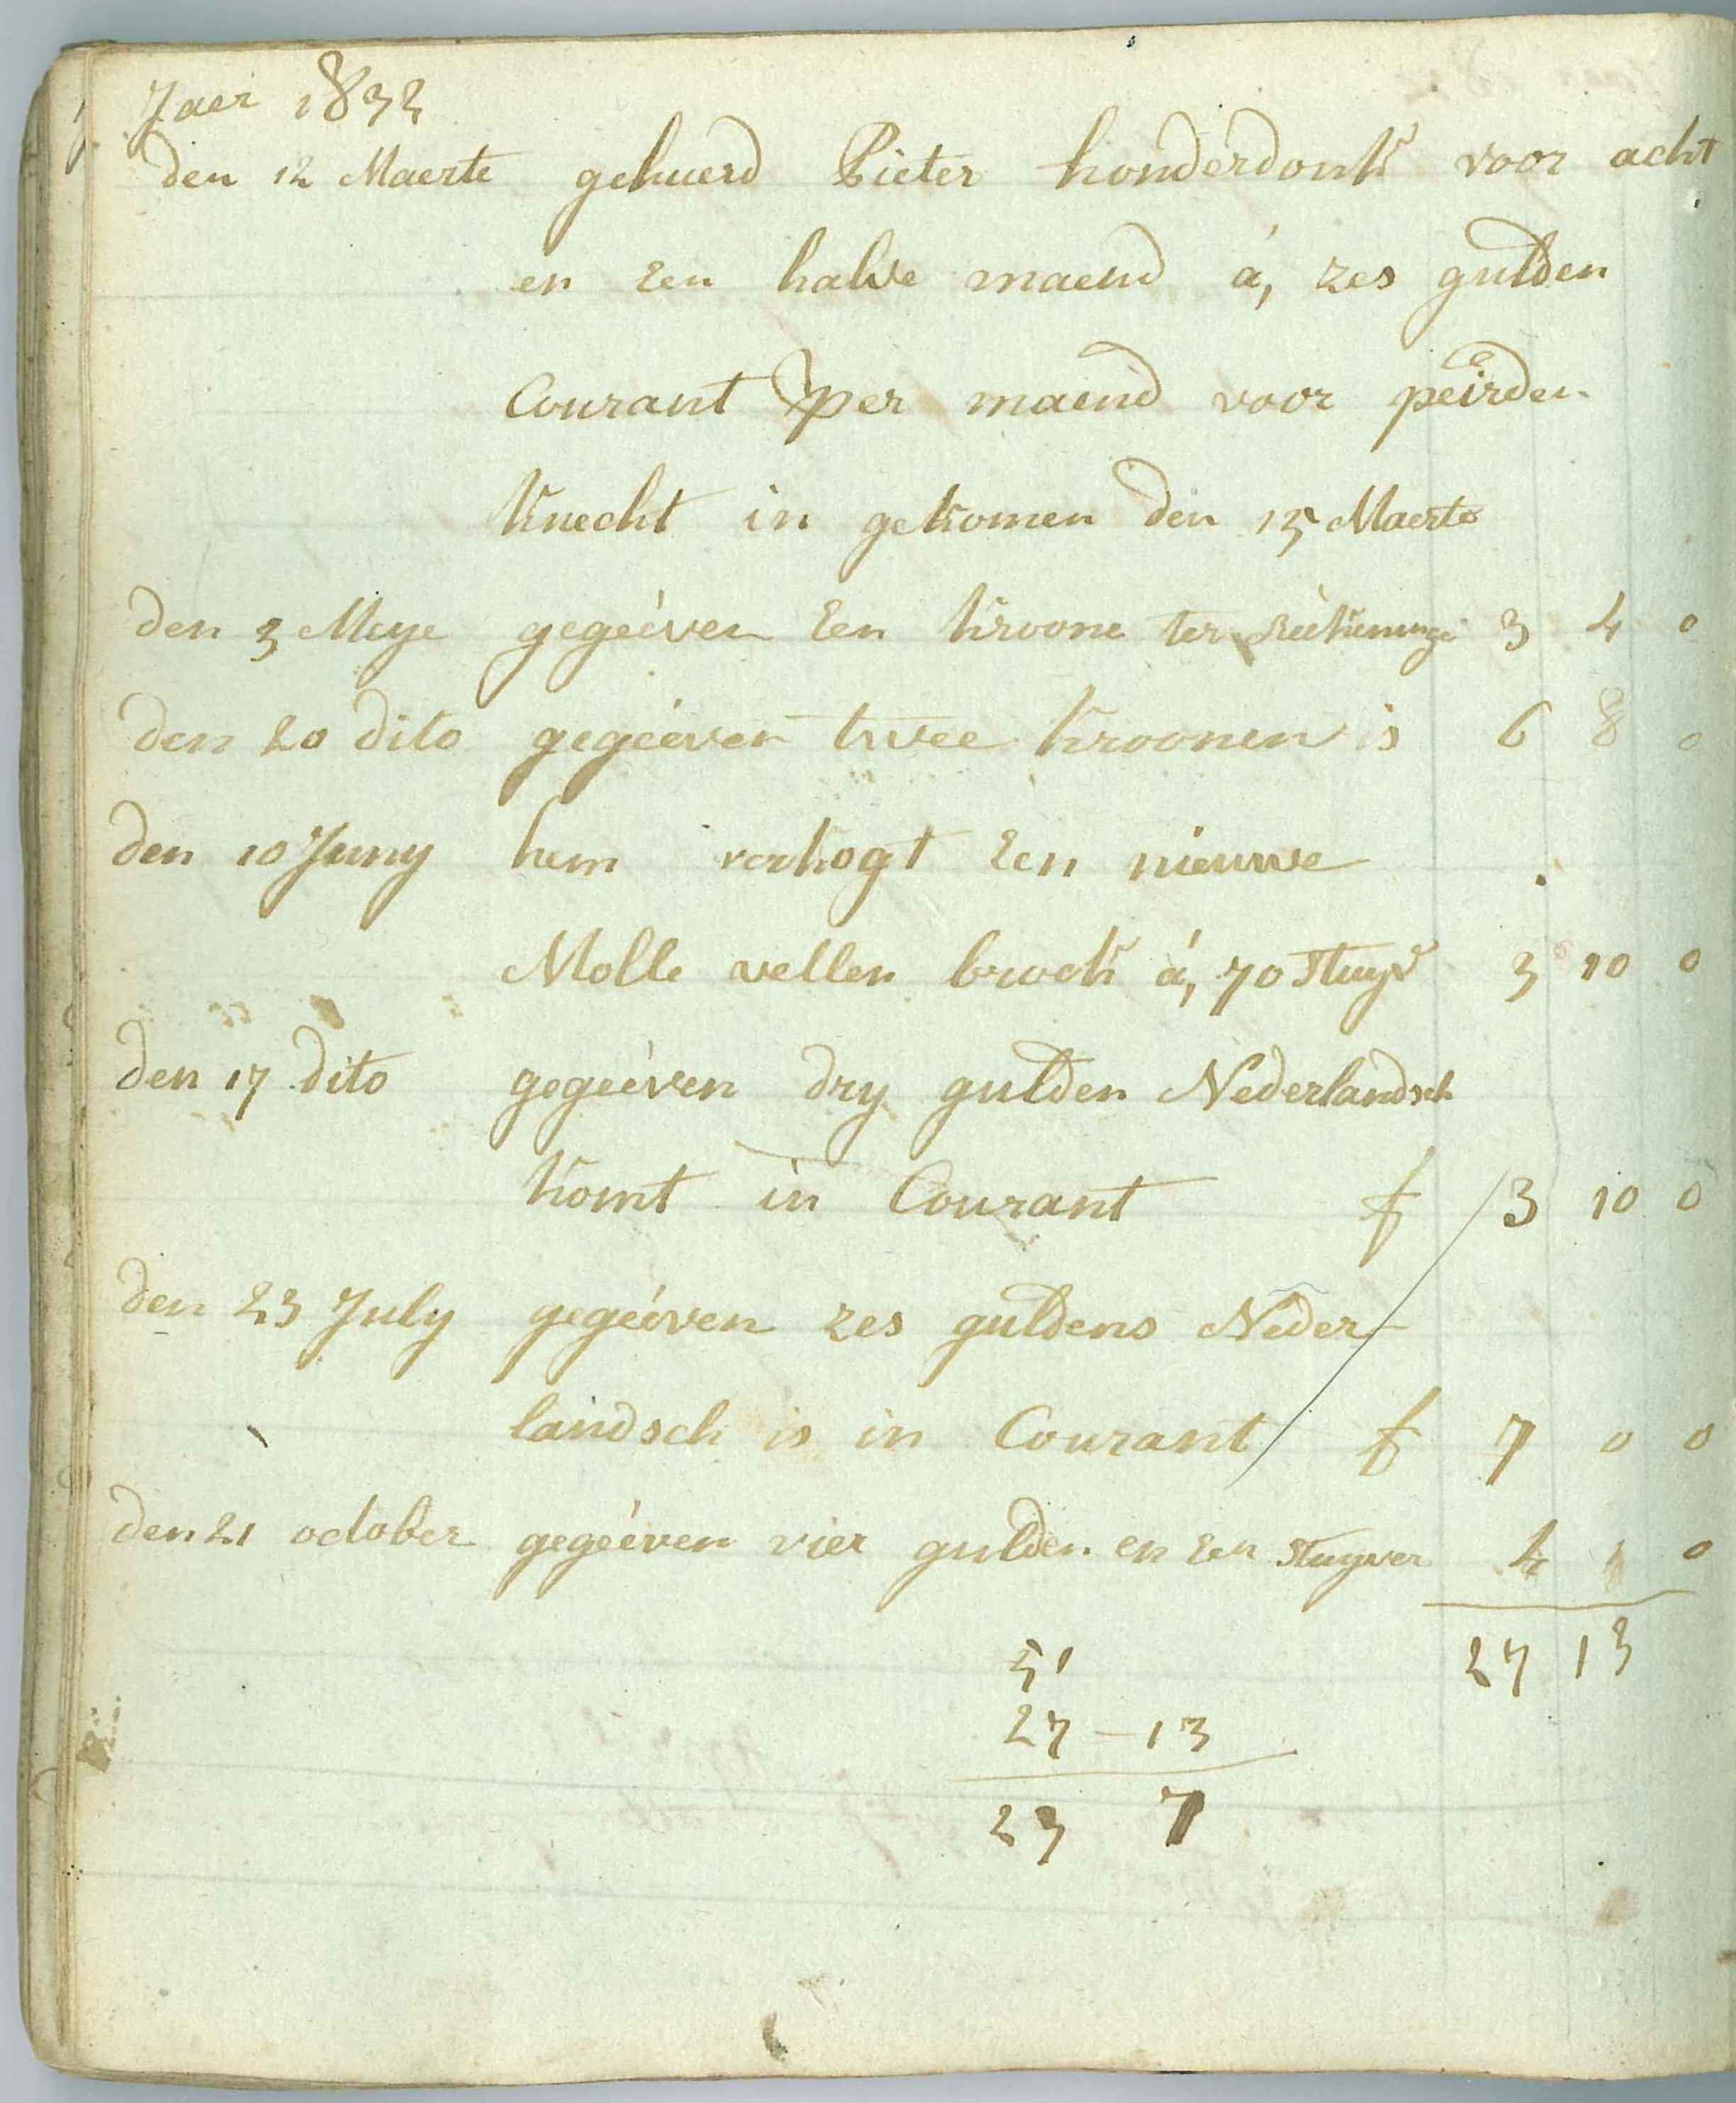 Jaer 1832
den 12 Maerte gehuerd Pieter honderdonk voor acht
en een halve maend á, zes gulden
Courant per maend voor peirden
Knecht in gekomen den 15 Maerte
den 3 Meye gegeéven Een kroone ter Réekeninge 3 4 0
den 20 dito gegeéven twee kroonen is 6 8 0
den 10 Juny hem verkogt Een nieuwe
Molle vellen broek á, 70 stuyv 3 10 0
den 17 dito gegeéven dry gulden Nederlandsch
komt in Courant f 3 10 0
den 23 July gegeéven zes guldens Neder-
landsch is in Courant f 7 0 0
den 21 october gegeéven vier gulden en Een stuyver 4 1 0
27 13
51
27 - 13
23 7